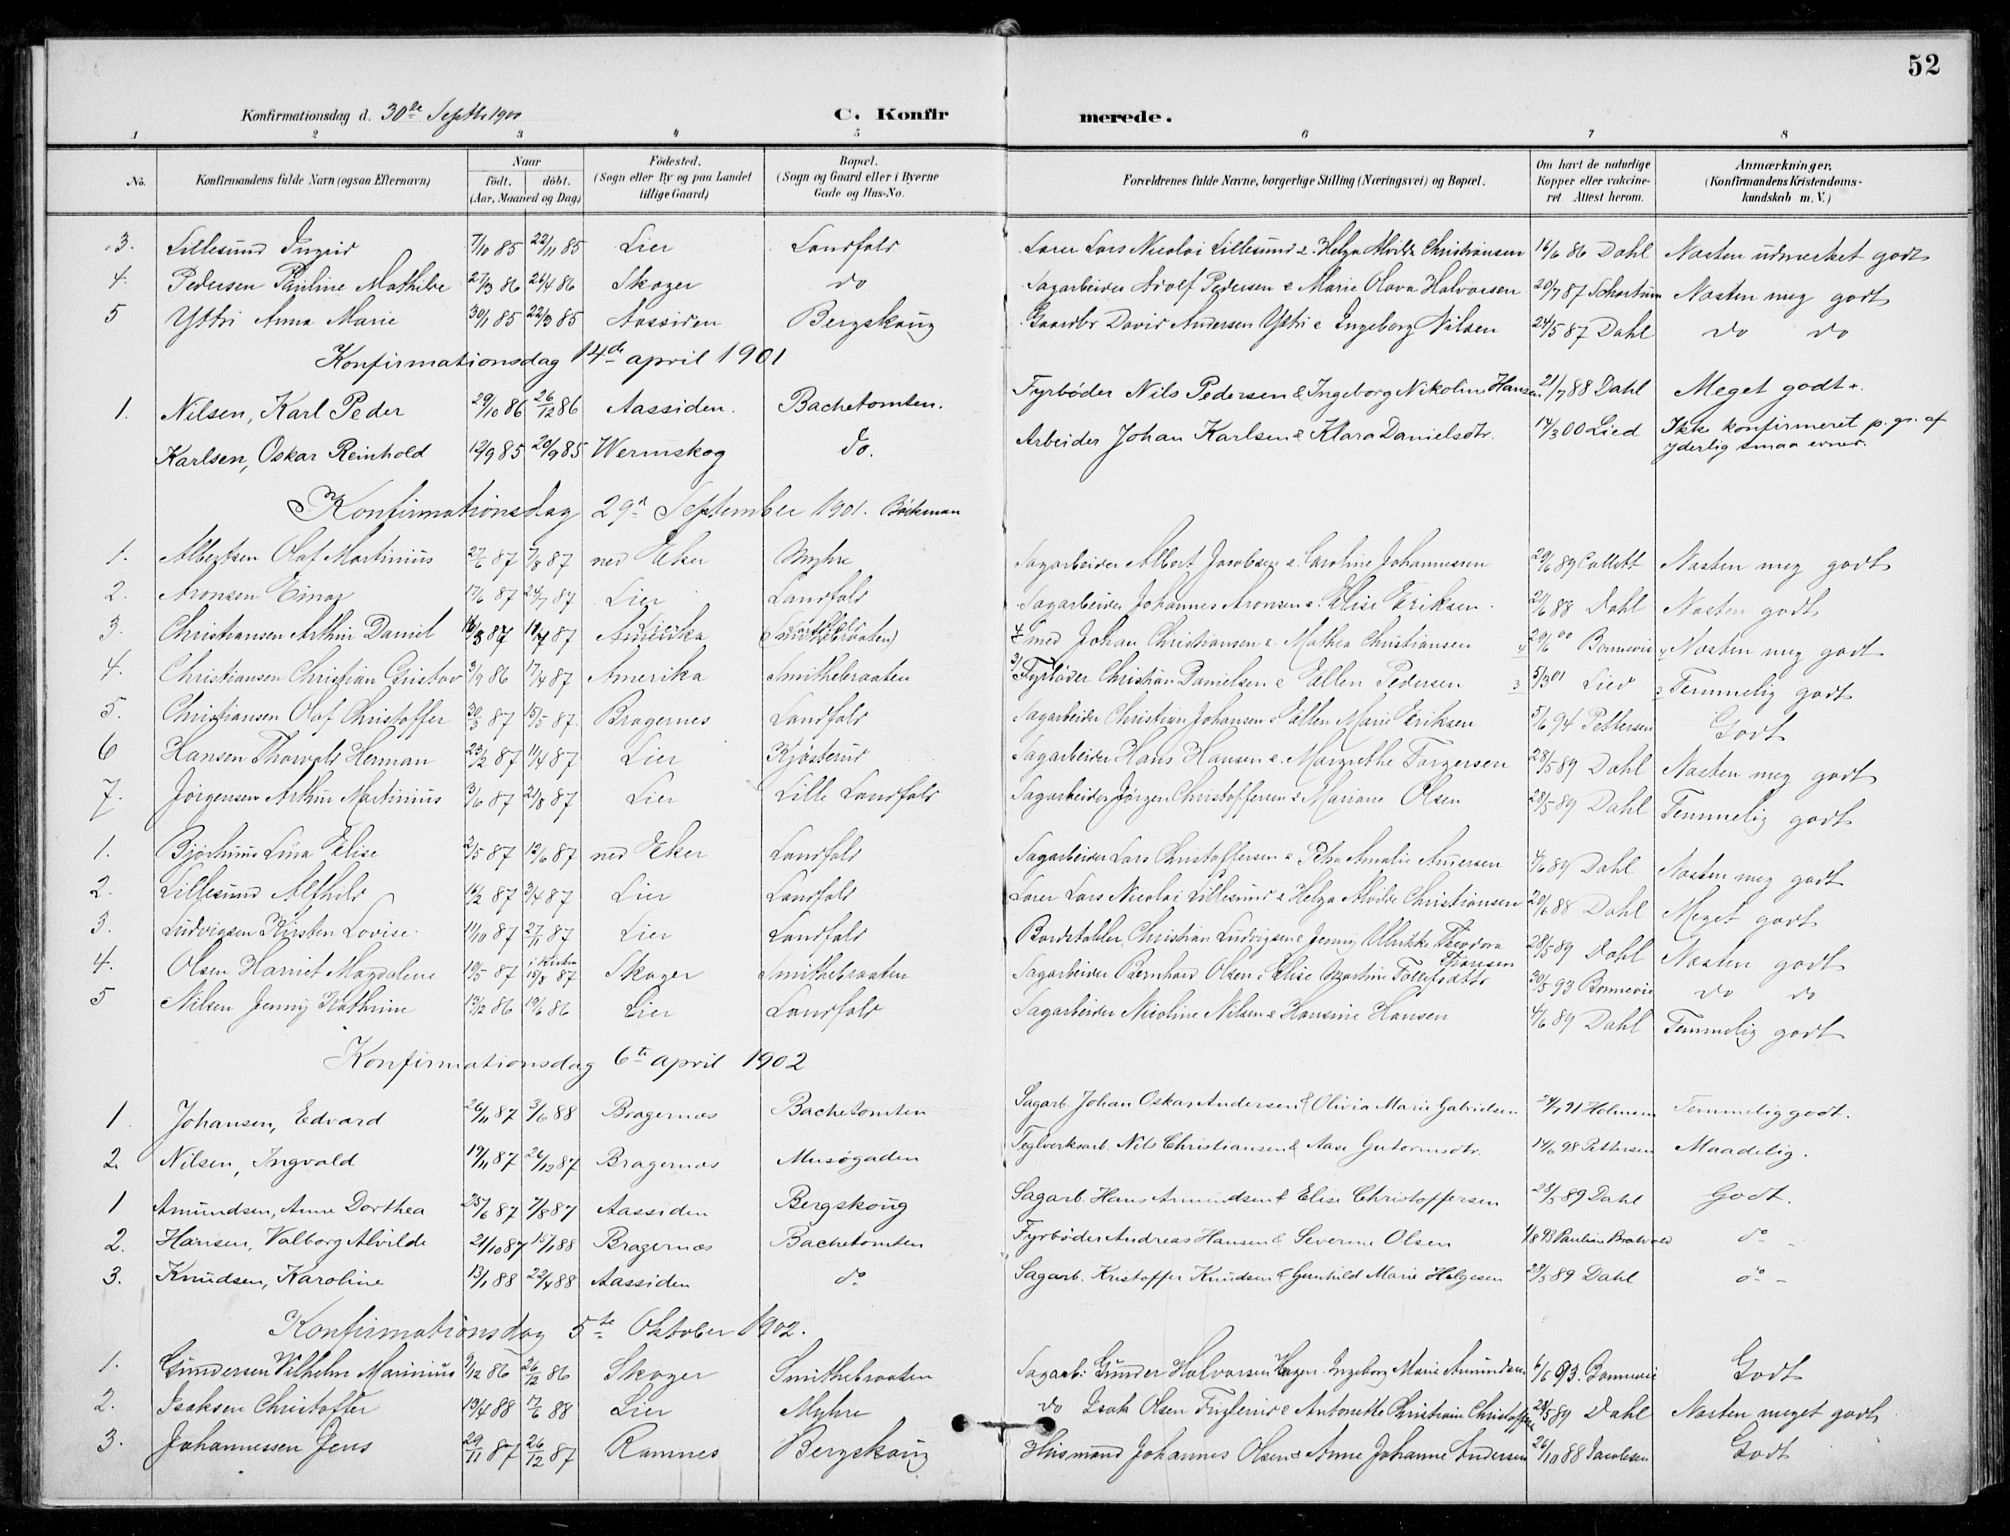 52
Konfirmationsdag d. 30de Septbr 1900 C. Konfir merede.
1 2 3 4 5 6 7 8
No. Konfirmandens fulde Navn (ogsaa Efternavn) Naar födt. döbt. (Aar, Maaned og Dag) Födested. (Sogn eller By og paa Landet tillige Gaard) Bopæl. (Sogn og Gaard eller i Byerne Gade og Hus-No. Forældrenes fulde Navne, borgerlige Stilling (Næringsvei) og Bopæl. Om havt de naturlige Kopper eller vakcineret. Attest herom. Anmærkninger, (Konfirmandens Kristendomskundskab m. V.)
3. Lillesund Ingrid 7/10 85 22/11 85 Lier Landfald Lærer Lars Nicolai Lillesund & Helga Alvilde Christiansen 16/6 86 Dahl Næsten udmerket godt
4. Pedersen Pauline Mathilde 27/3 86 26/4 86 Skoger do Sagarbeider Adolf Pedersen & Marie Olava Halvorsen 20/7 87 Schartum Næsten meg godt
5 Ytteri Anna Marie 30/1 85 22/3 85 Aassiden Bergskoug Gaardbr David Andersen Ytteri & Ingeborg Nilsen 24/5 87 Dahl do do
Konfirmationsdag 14de april 1901
1. Nilsen, Karl Peder 29/10 86 26/12 86 Aassiden. Bachetomten. Fyrbøder Nils Pedersen & Ingeborg Nikoline Hansen 21/7 88 Dahl Meget godt.
Karlsen, Oskar Reinhold 12/9 85 20/9 85 Wermskog do. Arbeider Johan Karlsen & Klara Danielsdtr. 14/3 00 Lied Ikke konfirmeret p. gr. af yderlig smaa evner.
Konfirmationsdag 29n September 1901. Böckman
1. Albertsen Olaf Martinius 27/6 87 7/8 87 ned Eker Myhre Sagarbeider Albert Jacobsen & Caroline Johannessen 29/6 89 Collett Næsten meg godt
2. Aronsen Einar 17/6 87 24/7 87 Lier Landfald Sagarbeider Johannes Aronsen & Elise Eriksen. 21/6 88 Dahl Næsten godt
3. Christiansen Arthur Daniel 16/3 87 19/4 87 Landfald Smed Johan Christiansen & Mathea Christiansen 29/6 00 Bonnevie Næsten meg godt
4. Christiansen Christian Gustav 3/9 86 17/4 87 Amerika Smithebraaten Fyrbøder Christian Danielsen & Ellen Pedersen 5/3 01 Lied Temmelig godt
5. Christiansen Olaf Christoffer 30/3 87 15/5 87 Bragernes Landfald Sagarbeider Christian Johansen & Ellen Marie Eriksen 5/6 94 Pettersen Godt
6 Hansen Thorvald Herman 23/2 87 11/4 87 Lier Kjøsterud Sagarbeider Hans Hansen & Margrethe Torgersen 28/5 89 Dahl Næsten meg godt
7. Jørgensen Arthur Martinius 3/6 87 21/8 87 Lier Lille Landfald Sagarbeider Jørgen Christoffersen & Mariane Olsen 28/5 89 Dahl Temmelig godt
1. Bjørhuus Lina Elise 2/5 87 12/6 87 ned Eker Landfald Sagarbeider Lars Christoffersen & Petra Amalie Andersen 4/6 89 Dahl Næsten meg godt
2. Lillesund Alfhild 16/2 87 3/4 87 Lier Landfald Lærer Lars Nicolai Lillesund & Helga Alvilde Christiansen 20/6 88 Dahl Meget godt
3. Ludvigsen Kirsten Lovise 11/10 87 27/11 87 Lier Landfald Bordstabler Christian Ludvigsen & Jenny Ulrikke Theodora Thoresen 28/5 89 Dahl Næsten godt
4. Olsen Harriet Magdalene 19/5 87 i Kirken 15/8 87 Skoger Smithebraaten Sagarbeider Bernhard Olsen & Elise Martine Tollefsdtr 30/5 93 Bonnevie do do
5 Nilsen Jenny Kathrine 13/2 86 19/6 86 Lier Landfald Sagarbeider Nicoline Nilsen & Hansine Hansen 4/6 89 Dahl Temmelig godt
Konfirmationsdag 6te april 1902
1 Johansen, Edvard 26/11 87 3/6 88 Bragernæs Bachetomten Sagarb. Johan Oskar Andersen & Olivia Marie Gabrielsen 91 Holmsen Temmelig godt.
2. Nilsen, Ingvald 19/11 87 26/12 87 Bragernæs Musøgaden Teglverksarb. Nils Christiansen & Aase Gutormsdtr. 14/6 98 Pettersen Maadelig.
1 Amundsen, Anne Dorthea 25/6 87 7/8 87 Aassiden Bergskoug Sagarb. Hans Amundsen & Elise Christoffersen 28/5 89 Dahl Godt.
2. Hansen, Valborg Alvilde 21/10 87 15/1 88 Bragernæs Bachetomten Fyrbøder Andreas Hansen & Severine Olsen 1/8 93 Pauline Bratvold do
3. Knudsen, Karoline 13/1 88 22/4 88 Aassiden do Sagarb. Kristoffer Knudsen & Gunhild Marie Helgesen 28/5 89 Dahl do
Konfirmationsdag 5te Oktober 1902.
1. Gundersen Vilhelm Marinius 9/12 86 26/12 86 Skoger Smithebraaten Sagarb: Gunder Halvorsen Hagen Ingeborg Marie Amundsen 6/6 93. Bonnevie Godt
2. Isaksen Christoffer 13/4 88 17/6 88 Lier Myhre do Isak Olsen Fuglerud & Antonette Christiane Christoffersen 28/5 89 Dahl Næsten meget godt
3. Johannessen Jens 29/11 87 26/12 87 Ramnes Bergskoug Husmand Johannes Olsen & Anne Johanne Andersen 26/10 88 Jacobsen Godt